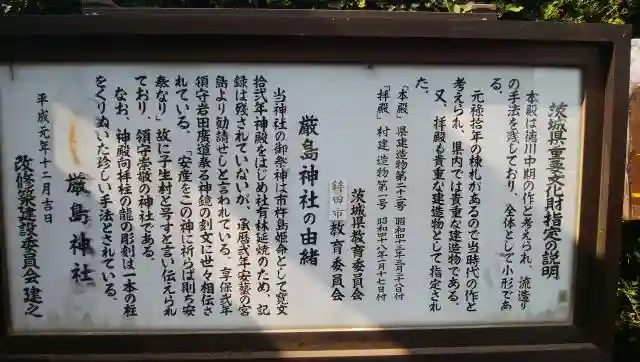 茨城県重要文化財指定の説明
本殿は徳川中期の作と考えられ、流造り
の手法を残しており、全体として小形であ
る。
元禄拾年の棟札があるので当時代の作と
考えられ、県内では貴重な建造物である。
又、拝殿も貴重な建造物として指定され
た。
「本殿」県建造物第二十二号 昭和四十二年三月二十八日付
「拝殿」村建造物第二号 昭和四十八年二月十七日付
茨城県教育委員会
鉾田市教育委員会
厳島神社の由緒
当神社の御祭神は市杵島姫命として寛文
拾弐年神殿をはじめ社有林延焼のため、記
録は残されていないが、承暦弐年安芸の宮
島より勧請せしと言われている。享保弐年
領守岩田廣道奉る神鏡の刻文に世々相伝さ
れている、「安産をこの神に祈れば則ち安
泰なり」故に子生村と号すと言い伝えられ
ており、領守崇敬の神社である。
なお、神殿向拝柱の龍の彫刻は一本の柱
をくりぬいた珍しい手法とされている。
平成元年十二月吉日
厳島神社
改修築建設委員会 建之